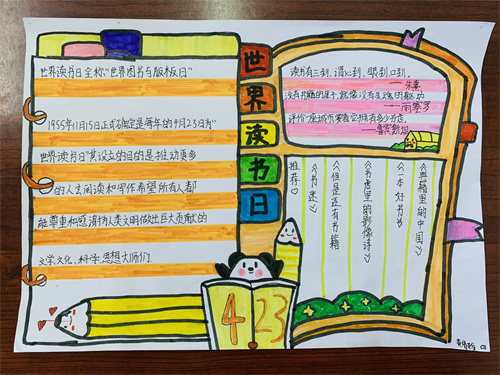 世界读书日全称"世界图书与版权日"
1955年11月15日正式确定是每年的4月23日为"
世界读书日"其设立的目的是推动更多
的人去阅读和写作希望所有人都
能尊重和感谢为人类文明做出巨大贡献的
文学文化、科学、思想大师们
世界读书日
读书有三到,谓心到,眼到,口到。
——朱熹
没有书籍的屋子,就像没有灵魂的
评价一座城市,要看它拥有多少书店。
《典籍里的中国》
《一本好书》
《书房里的影像诗》
《但是还有书籍》
《书迷》
推荐
423